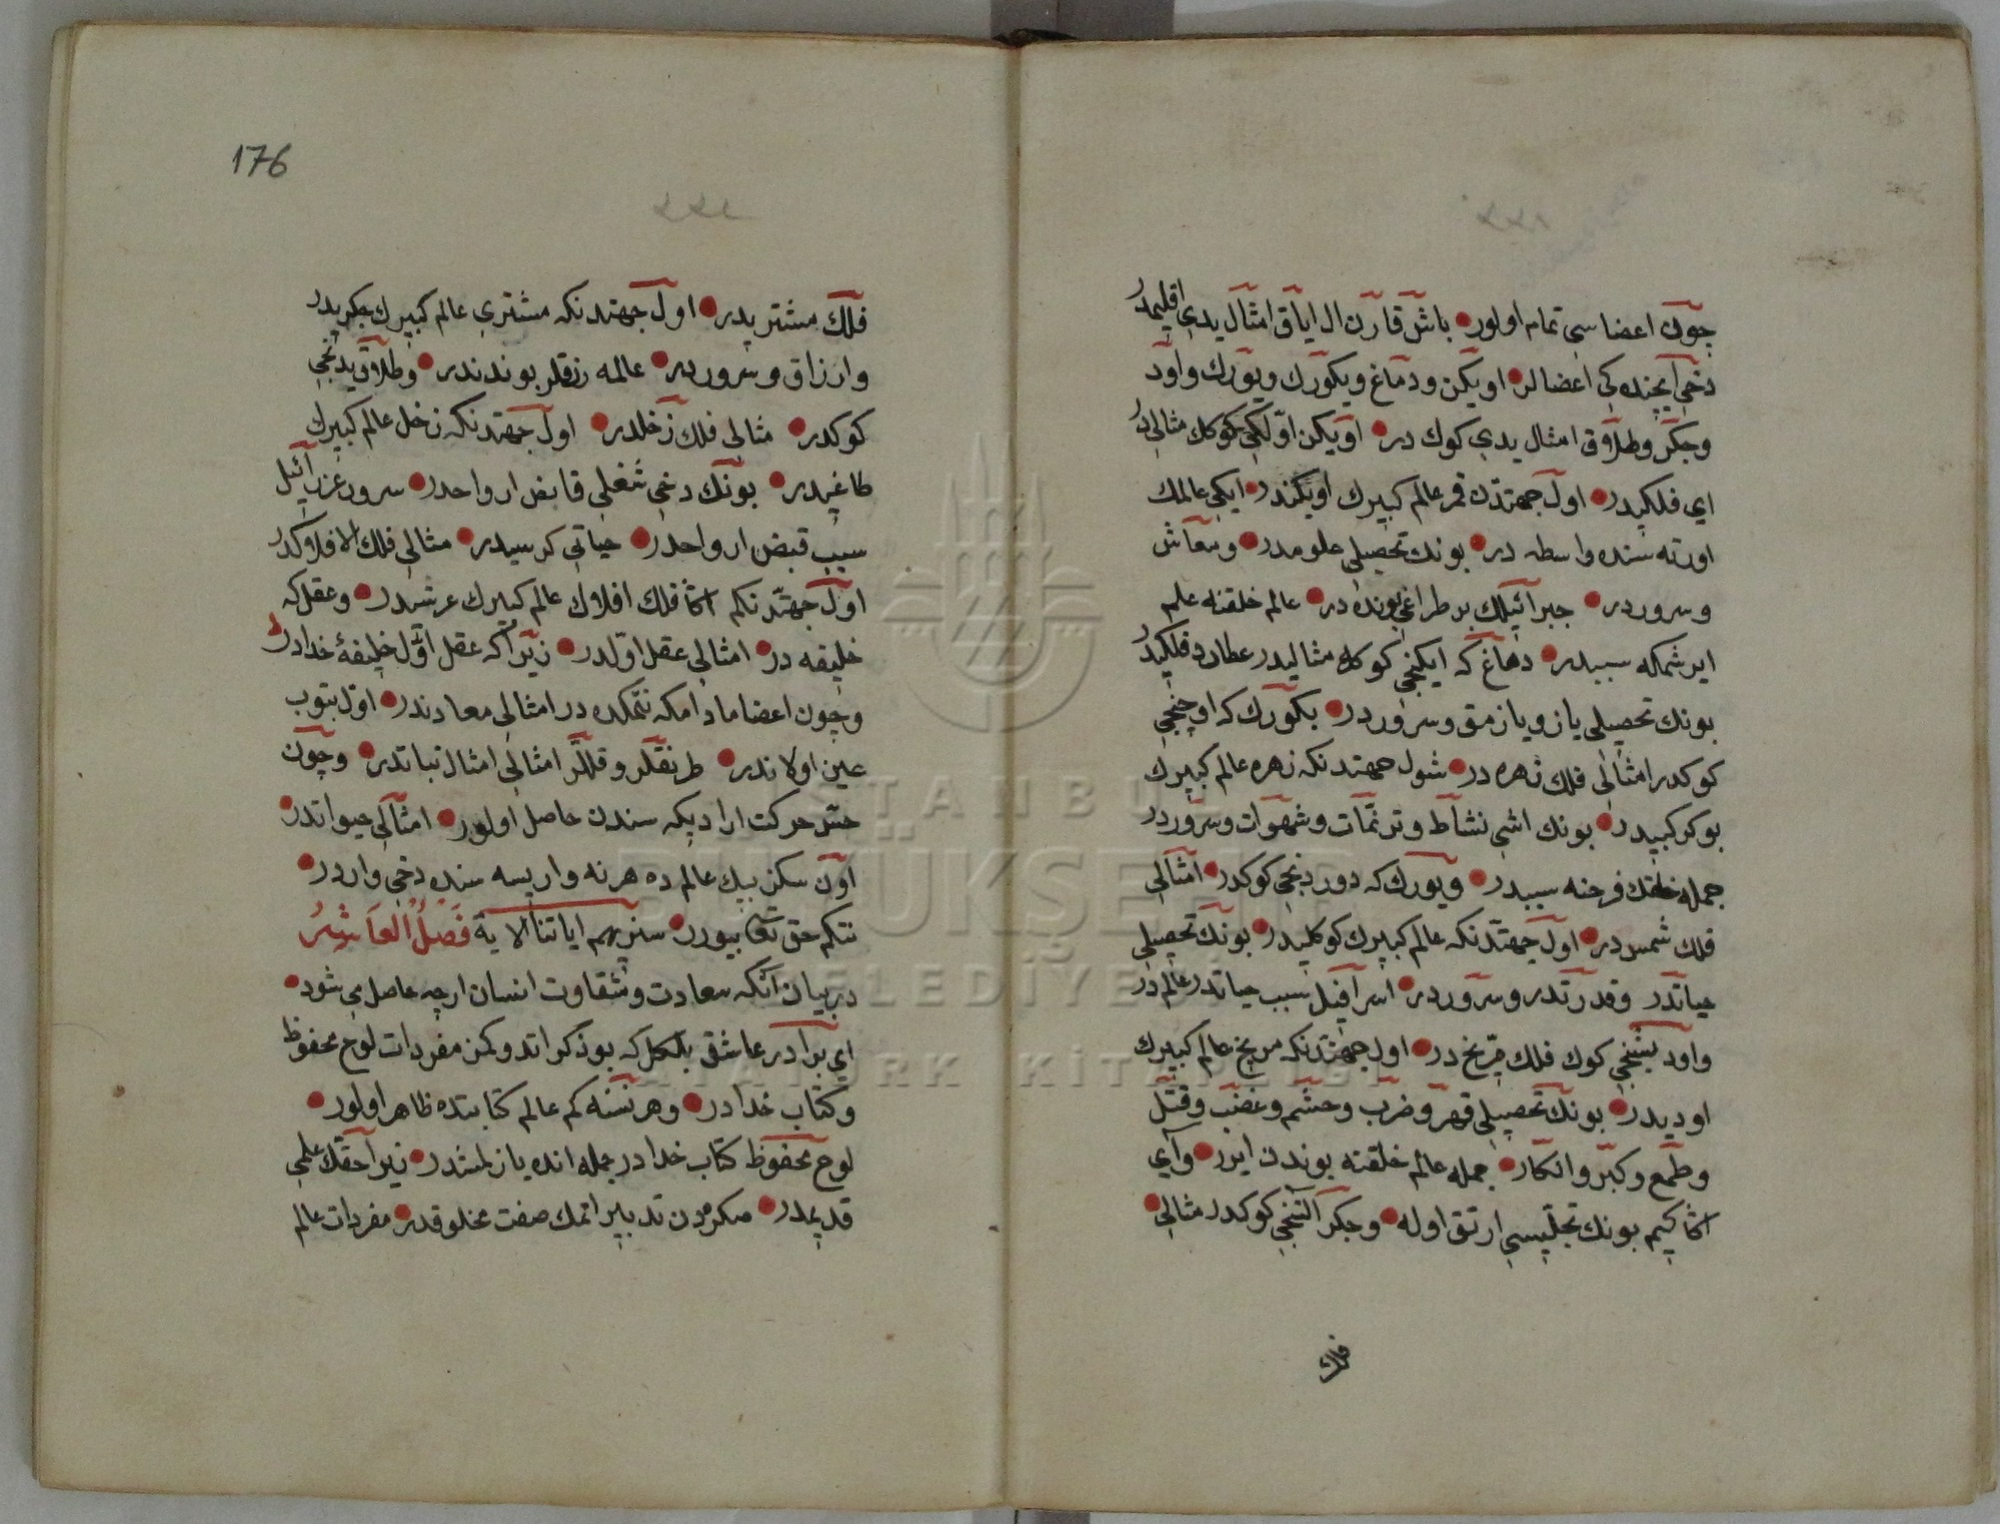 چون اعضاسی تمام اولور باش قارن ال ایاق امثال یدی اقلیمدر
دخی ایچنده کی اعضالر اویکن ودماغ وبكورك ویورك واود
وجکر وطلاق امثال یدی کوك در اویکن اولکی کوکك مثالی در
ای فلکیدر اول جهتدن قمر عالم کبیرك اویکندر ایکی عالمك
اورته سنده واسطه در بونك تحصیلی علومدر ومعاش
وسروردر جبرائیلك بر طراغی بونده در عالم خلقنه علم
ایرشمکه سببدر دماغ که ایکنجی کوکك مثالیدر عطارد فلکیدر
بونك تحصیلی یازو یازمق وسروردر بكورك که اوچنجی
کوکدر امثالی فلك زهره در شول جهتدنکه زهره عالم کبیرك
بوکرکیدر بونك اشی نشاط وترنمات وشهوات وسروردر
جمله خلقك فرحنه سببدر ویورك که دوردنجی کوکدر امثالی
فلك شمس در اول جهتدنکه عالم کبیرك کوکلیدر بونك تحصیلی
حیاتدر وقدرتدر وسروردر اسرافیل سبب حیاتدر عالم در
واود بشنجی کوك فلك مریخ در اول جهتدنکه مریخ عالم کبیرك
اودیدر بونك تحصیلی قهر وضرب وخشم وغضب وقتل
وطمع وکبر وانکار جمله عالم خلقنه بوندن ایرر وای
اکا کیم بونك تجلیسی ارتق اوله وجکر التنجی کوکدر مثالی
فلك
176
فلك مشتریدر اول جهتدنکه مشتری عالم کبیرك جکریدر
وارزاق وسروردر عالمه رزقلر بوندندر وطلاق یدنجی
کوکدر مثالی فلك زحلدر اول جهتدنکه زحل عالم کبیرك
طاغیدر بونك دخی شغلی قابض ارواحدر سرور عزرائیل
سبب قبض ارواحدر حیاتی کرسیدر مثالی فلك الافلاکدر
اول جهتدنکم اکا فلك افلاك عالم کبیرك عرشدر وعقل که
خلیفه در امثالی عقل اولدر زیرا که عقل اول خلیفۀ خدادر
وچون اعضا مادامکه نتمکده در امثالی معادندر اول بتوب
عین اولاندر طرنقلر وقللر امثالی امثال نباتدر وچون
حس حرکت ارادیکه سندن حاصل اولور امثالی حیواندر
اون سکز بیك عالم ده هر نه واریسه سنده دخی واردر
نتکم حق تعا بیورر سنریهم ایاتنا الایة فصل العاشر
در بیان انکه سعادت وشقاوت انسان ازچه حاصل می شود
ای برادر عاشق بلکل که بو ذکر اتدوکمز مفردات لوح محفوظ
وکتاب خدادر وهر نسنه کم عالم کتابتده ظاهر اولور
لوح محفوظ کتاب خدادر جمله انده یازلمشدر زیرا حقك علمی
قدیمدر صکره دن تدبیر اتمك صفت مخلوقدر مفردات عالم